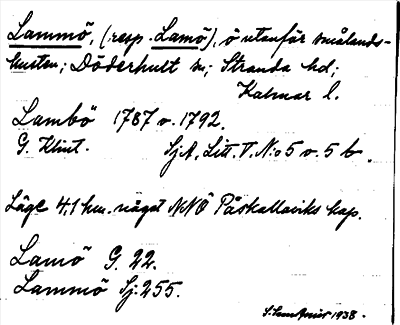 Lammö, (resp. Lamö), ö utanför smålands-
kusten; Döderhult sn; Stranda hd;
Kalmar l.
Lambö 1787 o. 1792.
G. Klint. SjA, Litt. V. N:o 5 o. 5 b.
Läge 4,1 km. något NNÖ Påskallaviks kap.
Lamö G. 22.
Lammö Sj: 255.
1938.